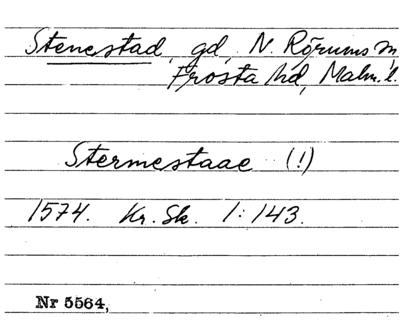 Stenestad, gd, N. Rörums sn
Frosta hd, Malm. l.
Stermestaae (!)
1574. Kr. Sk. 1: 143.
Nr 5564,